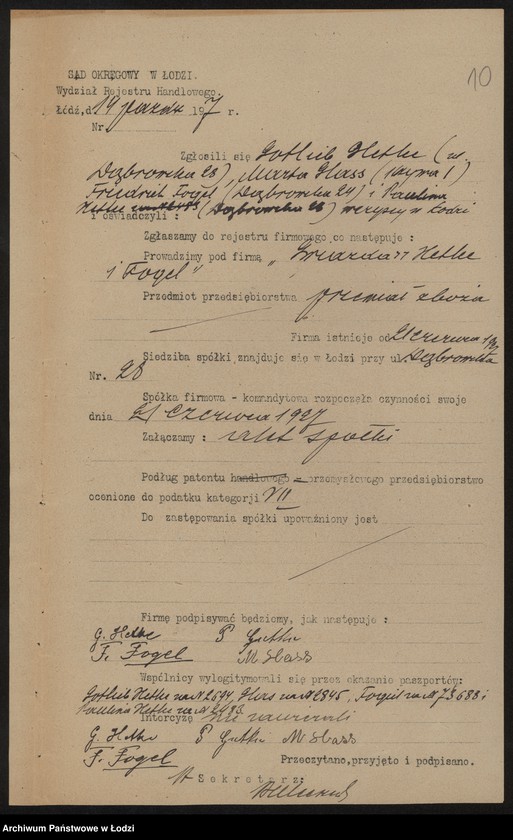 10
SĄD OKRĘGOWY W ŁODZI.
Wydział Rejestru Handlowego.
Łódź, d. 19 paźdz 1927 r.
Nr.
Zgłosili się Gotlieb Hetke (ul.
Dąbrowska 28), Marta Glass
Friedrich Fogel (Dąbrowska 24) i Paulina
Hetke (Dąbrowska 28) wszyscy w Łodzi
i oświadczyli :
Zgłaszamy do rejestru firmowego co następuje :
Prowadzimy pod firmą " Hetke
i Fogel"
Przedmiot przedsiębiorstwa przemiał zboża
Firma istnieje od 21 czerwca 1927
Siedziba spółki znajduje się w Łodzi przy ul. Dąbrowska
Nr. 28
Spółka firmowa - komandytowa rozpoczęła czynności swoje
dnia 21 czerwca 1927
Załączamy : akt spółki
Podług patentu handlowego - przemysłowego przedsiębiorstwo
ocenione do podatku kategorji VII
Do zastępowania spółki upoważniony jest
Firmę podpisywać będziemy, jak następuje :
G. Hetke P
F. Fogel M
Wspólnicy wylegitymowali się przez okazanie paszportów:
Gotlieb Hetke za N 2594, Glass za N 2845,
Paulina Hetke za N
Intercyzę nie zawierali
G. Hetke P M
F. Fogel
Przeczytano, przyjęto i podpisano.
Sekretarz:
Archiwum Państwowe w Łodzi